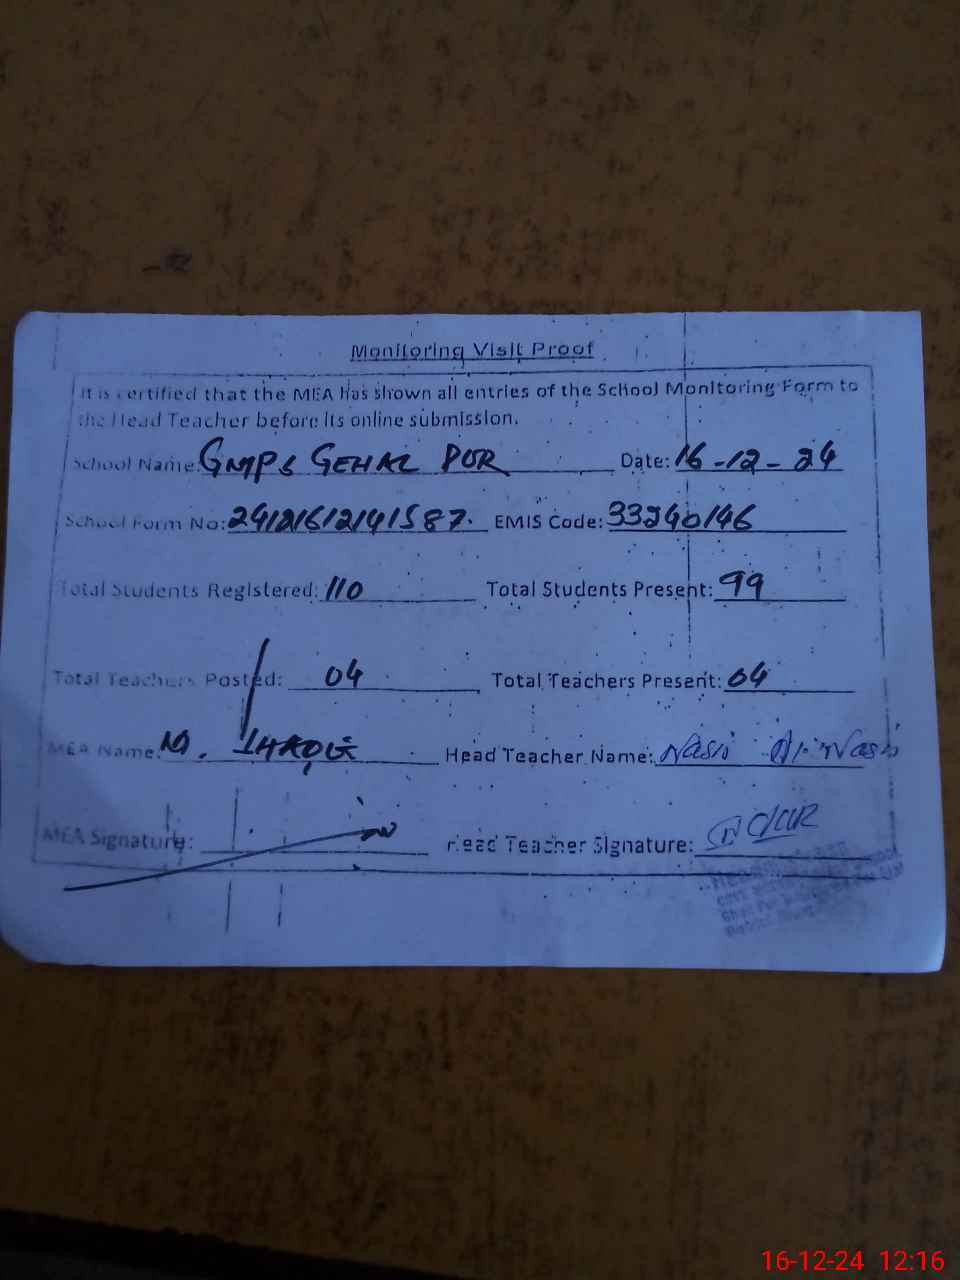 Monitoring Visit Proof
It is certified that the MEA has shown all entries of the School Monitoring Form to
the Head Teacher before its online submission.
School Name: GMPS GEHAL PUR Date: 16-12-24
School Form No: 24121612141587. EMIS Code: 33240146
Total Students Registered: 110 Total Students Present: 99
Total Teachers Posted: 04 Total Teachers Present: 04
MEA Name: M. Head Teacher Name:
MEA Signature: Head Teacher Signature:
16-12-24 12:16